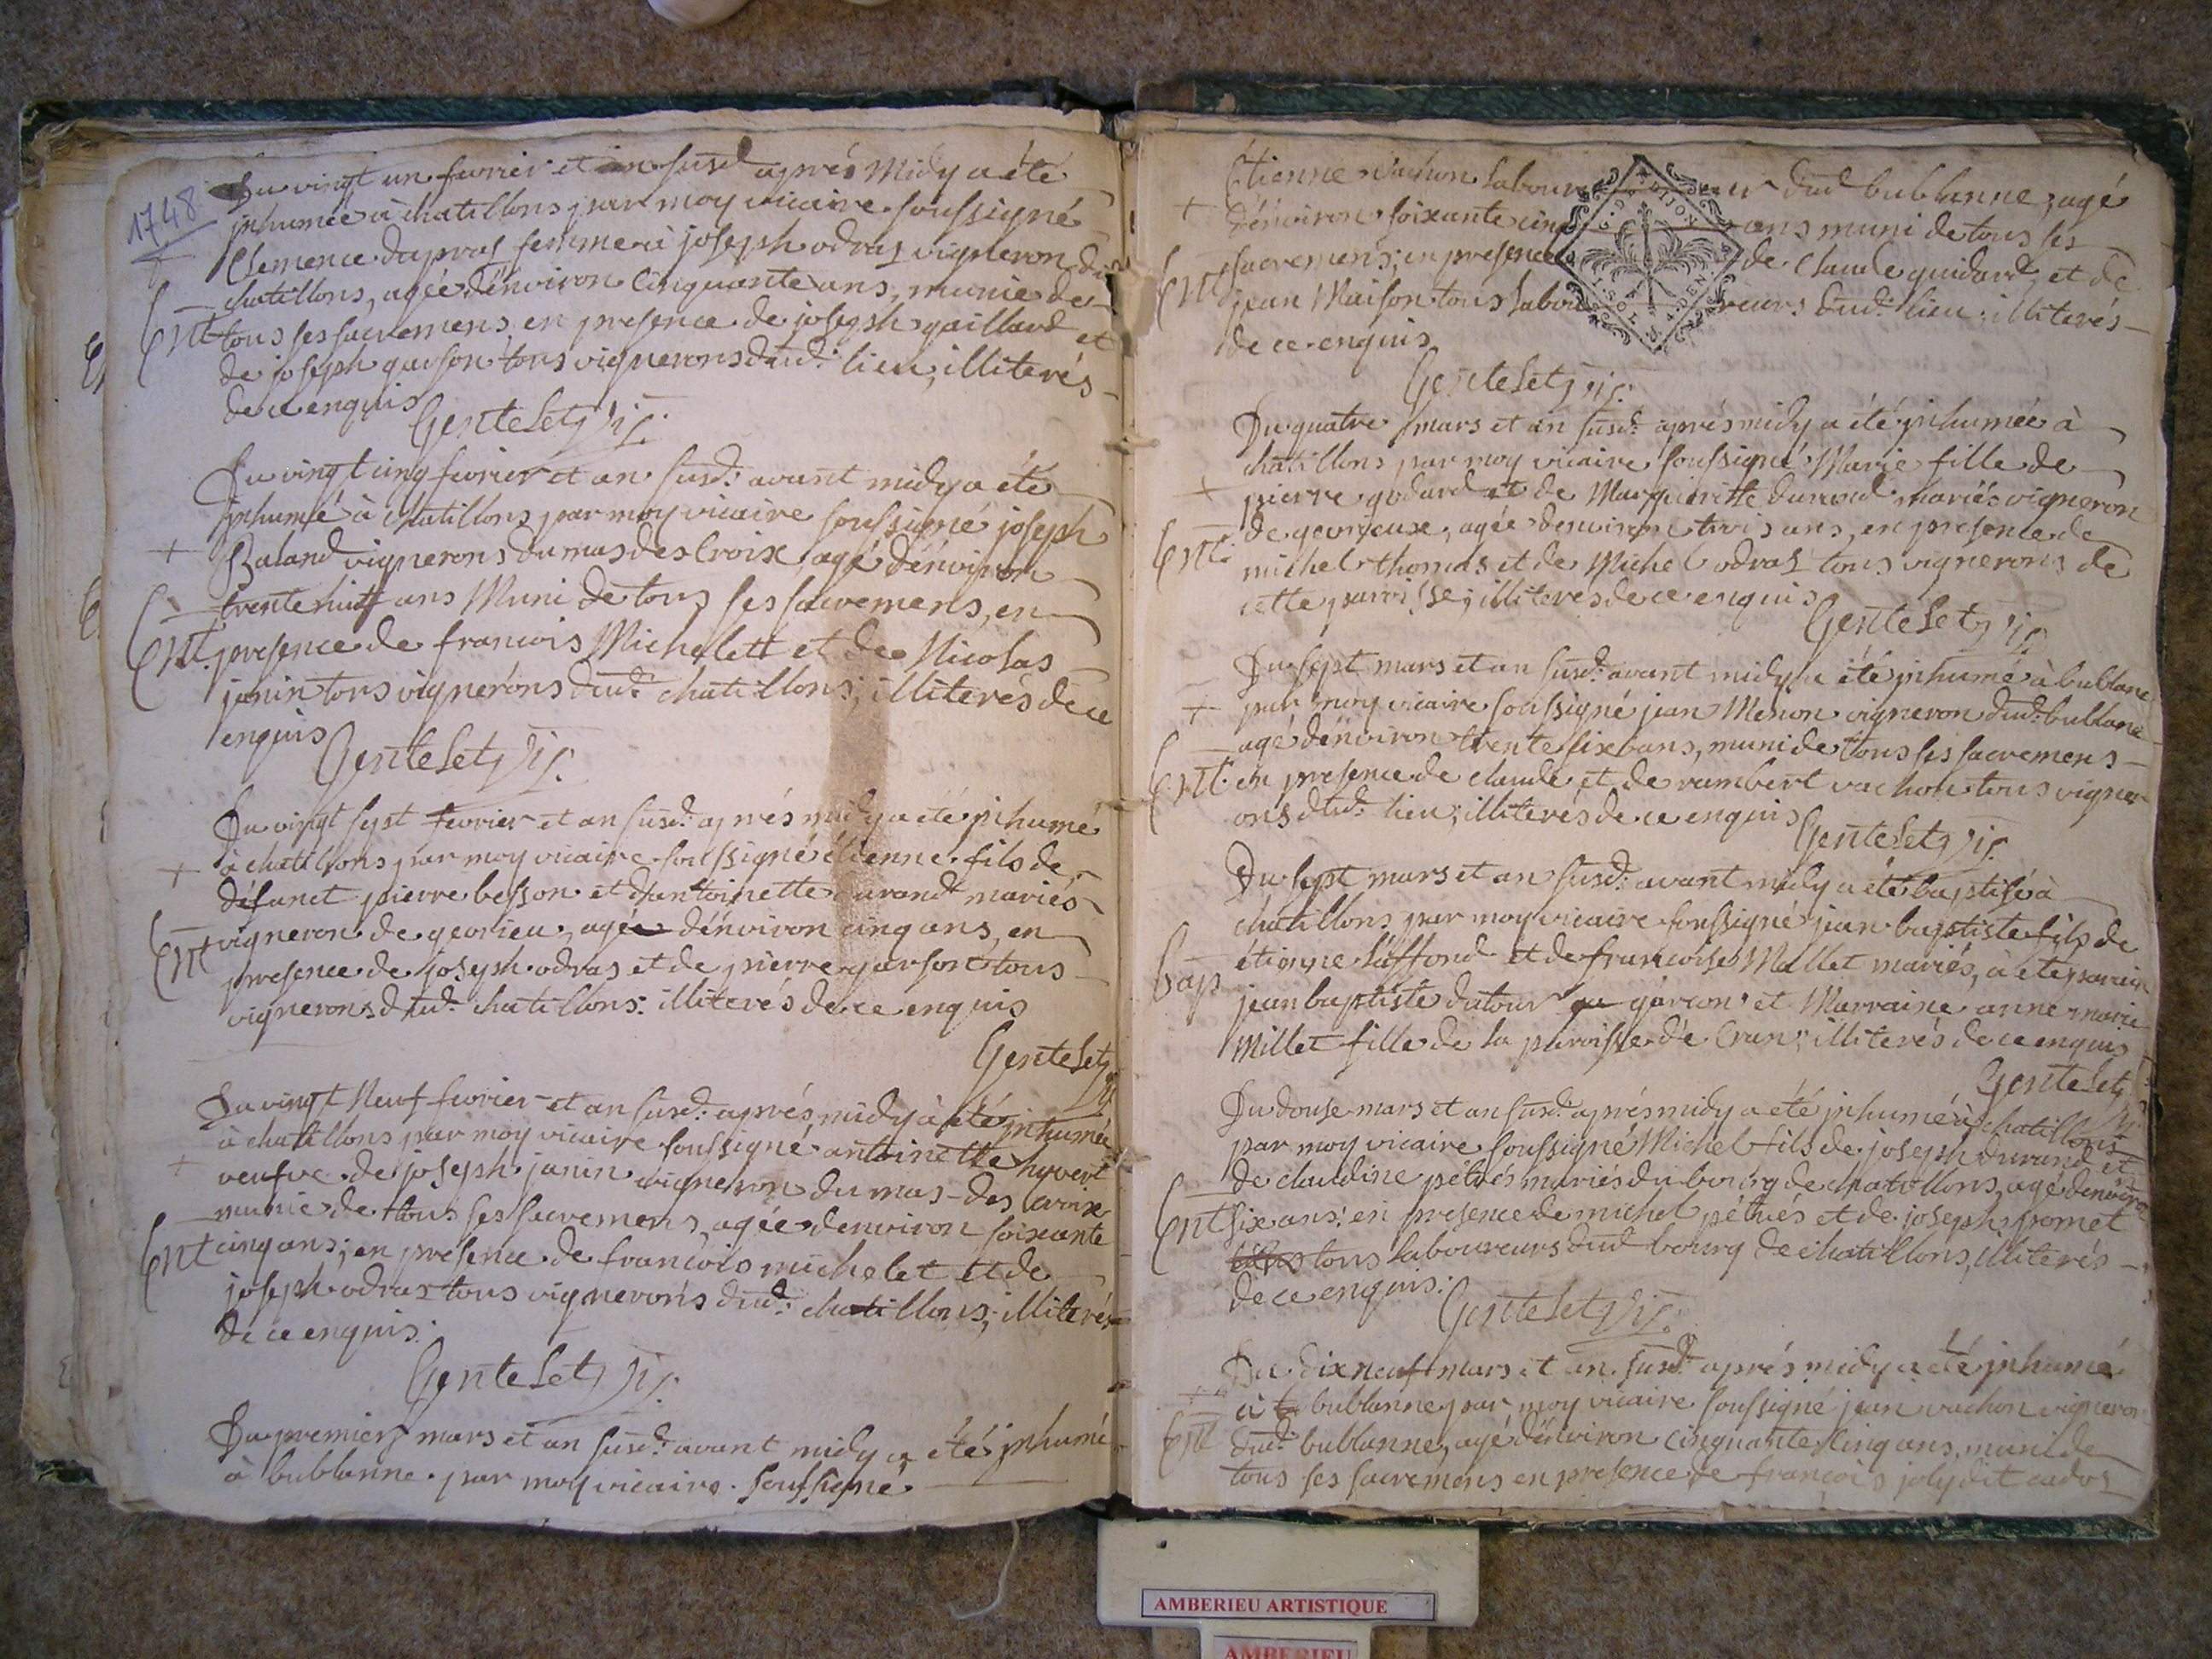 1748
Du vingt un fevrier et an susd aprés Midy a été
inhumée à chatillons par moy vicaire soussigné
Clemence dupras femme à joseph odras vigneron dud
chatillons, agée dénviron Cinquante ans, munie de
Ent tous ses sacremens en presence de joseph gaillard et
de joseph garson tous vignerons dud: lieu, illiterés
de ce enquis
Gentelet vic.
Du vingt cinq fevrier et an susd: avant midy a été
inhumé à chatillons par moy vicaire soussigné joseph
+ Baland vignerons du mas des Croix, agé dénviron
trente huit ans Muni de tous ses sacremens, en
Ent. presence de francois Michelett et de Nicolas
janin tous vignerons dud: chatillons; illiterés de ce
enquis
Gentelet vic.
Du vingt sept fevrier et an susd: aprés midy a été inhumé
+ à chatillons par moy vicaire soussigné étienne fils de
défunct pierre besson et d'antoinette durand mariés
Ent vigneron de gevrieu, agé dénviron cinq ans, en
presence de joseph odras et de pierre garson tous
vignerons dud: chatillons: illiterés de ce enquis
Gentelet
vic
Du vingt Neuf fevrier et an susd: aprés midy à été inhumée
à chatillons par moy vicaire soussigné antoinette hyvert
+ veufve de joseph janin vigneron du mas des Croix
munie de tous ses sacremens, agée denviron soixante
Ent cinq ans; en presence de francois michelet et de
joseph odras tous vignerons dud: chatillons; illiterés
de ce enquis:
Gentelet vic.
Du premier mars et an susd: avant midy a été inhumé
à bublanne par moy vicaire soussigné
Étienne vachon laboureur dud bublanne, agé
+ dénviron soixante cinq ans muni de tous ses
Ent sacremens; en presence de claude guidard et de
jean Maison tous laboureurs dud: lieu; illiterés
de ce enquis
Gentelet vic.
Du quatre mars et an susd: aprés midy a été inhumée à
chatillons par moy vicaire soussigné Marie fille de
+ pierre godard et de Margueritte durand mariés vigneron
Ent: de gevrieux, agée denviron trois ans, en presence de
michel thomas et de Michel odras tous vignerons de
cette parroisse; illiterés de ce enquis
Gentelet vic
Du sept mars et an susd: avant midy a été inhumé à bublane
+ par moy vicaire soussigné jean Menon vigneron dud: bublane
agé dénviron trente six ans, muni de tous ses sacremens
Ent. en presence de claude et de rambert vachon tous vigner
ons dud: lieu; illiterés de ce enquis
Gentelet vic.
Du sept mars et an susd: avant midy a été baptisé à
chatillons par moy vicaire soussigné jean baptiste fils de
Bap étienne laffond et de francoise Mallet mariés, à été parrain
jean baptiste datour garcon et Marraine anne marie
Millet fille de la paroisse de Cran; illiterés de ce enquis
Gentelet
vic
Du douse mars et an susd: aprés midy a été inhumé à chatillons
par moy vicaire soussigné Michel fils de joseph durand et
de claudine pétués mariés du bourg de chatillons, agé denviron
Ent six ans; en presence de michel pétués et de joseph fromet
tous laboureurs dud bourg de chatillons, illiterés
de ce enquis:
Gentelet vic.
Du dix neuf mars et an susd: aprés midy a été inhumé
+ à bublanne par moy vicaire soussigné jean vachon vigneron
Ent dud: bublanne, agé dénviron cinquante cinq ans, muni de
tous ses sacremens en presence de françois joly dit cados
AMBERIEU ARTISTIQUE
AMBERIEU